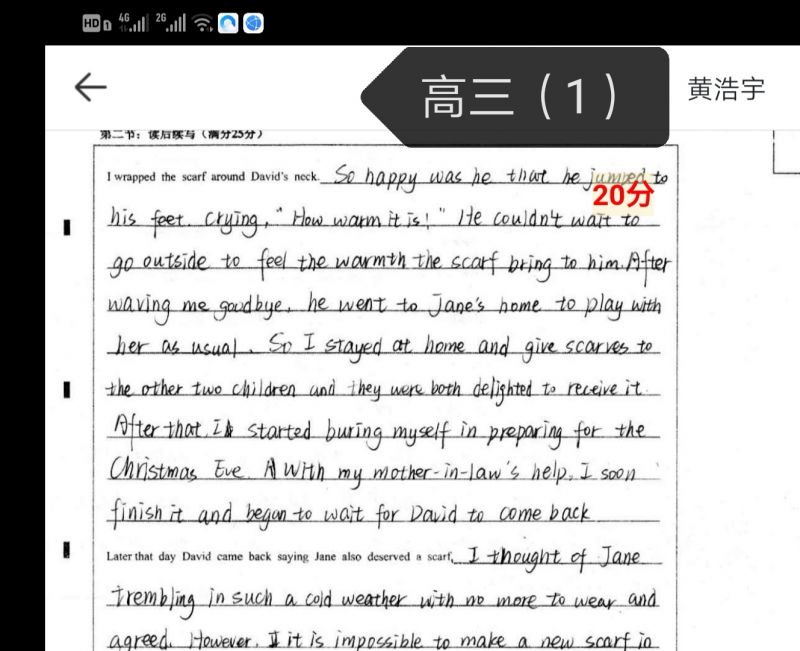 HD 1 4G 2G
高三（1） 黄浩宇
第二节：读后续写（满分25分）
I wrapped the scarf around David's neck. So happy was he that he jumped to
20分
his feet. Crying, "How warm it is!" He couldn't wait to
go outside to feel the warmth the scarf bring to him. After
waving me goodbye, he went to Jane's home to play with
her as usual. So I stayed at home and give scarves to
the other two children and they were both delighted to receive it.
After that, I started buring myself in preparing for the
Christmas Eve. With my mother-in-law's help, I soon
finish it and began to wait for David to come back
Later that day David came back saying Jane also deserved a scarf. I thought of Jane
trembling in such a cold weather with no more to wear and
agreed. However, it is impossible to make a new scarf in